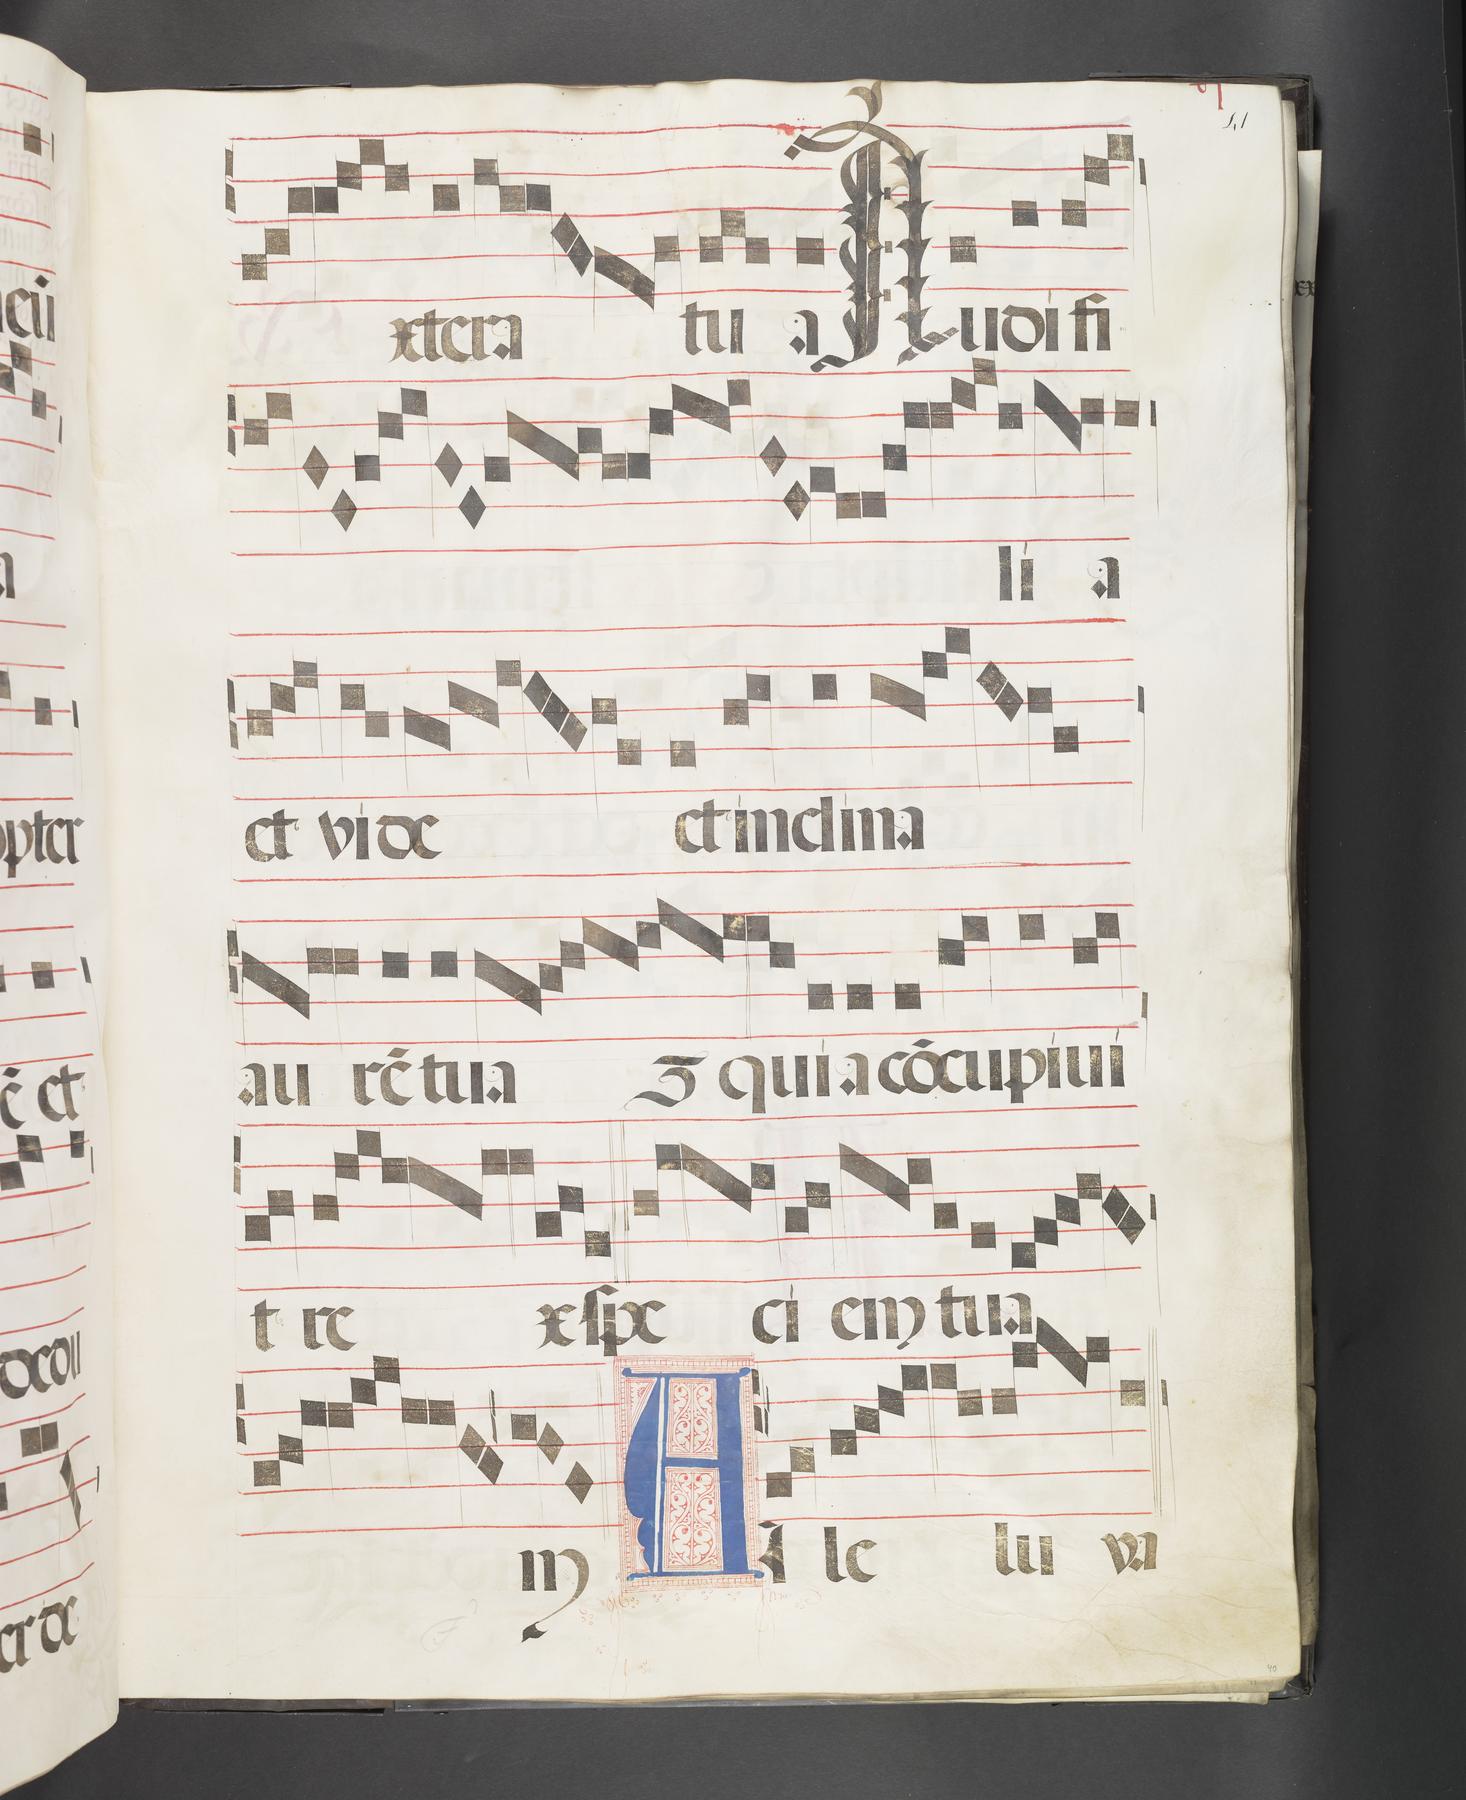 41
xtera tu a Audi fi
li a
et vi de et inclina
au rē tua ꝫ quia cōcupiui
t re x spe ci em tua
m A l le lu ya
40